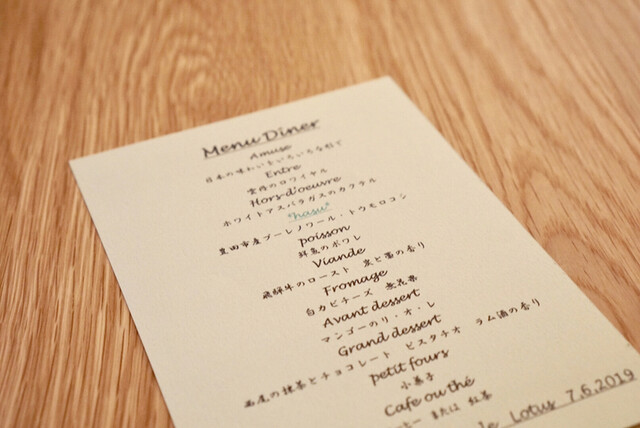 Menu Diner
Amuse
日本の味わいをいろいろな形で
Entre
雲丹のロワイヤル
Hors-d'oeuvre
ホワイトアスパラガスのカクテル
"hasu"
豊田市産プーレノワール・トウモロコシ
poisson
鮮魚のポワレ
Viande
飛騨牛のロースト 炭と藁の香り
Fromage
白カビチーズ 無花果
Avant dessert
マンゴーのリ・オ・レ
Grand dessert
西尾の抹茶とチョコレート ピスタチオ ラム酒の香り
petit fours
小菓子
Cafe ou thé
ヒー または 紅茶
Lotus 7.6.2019